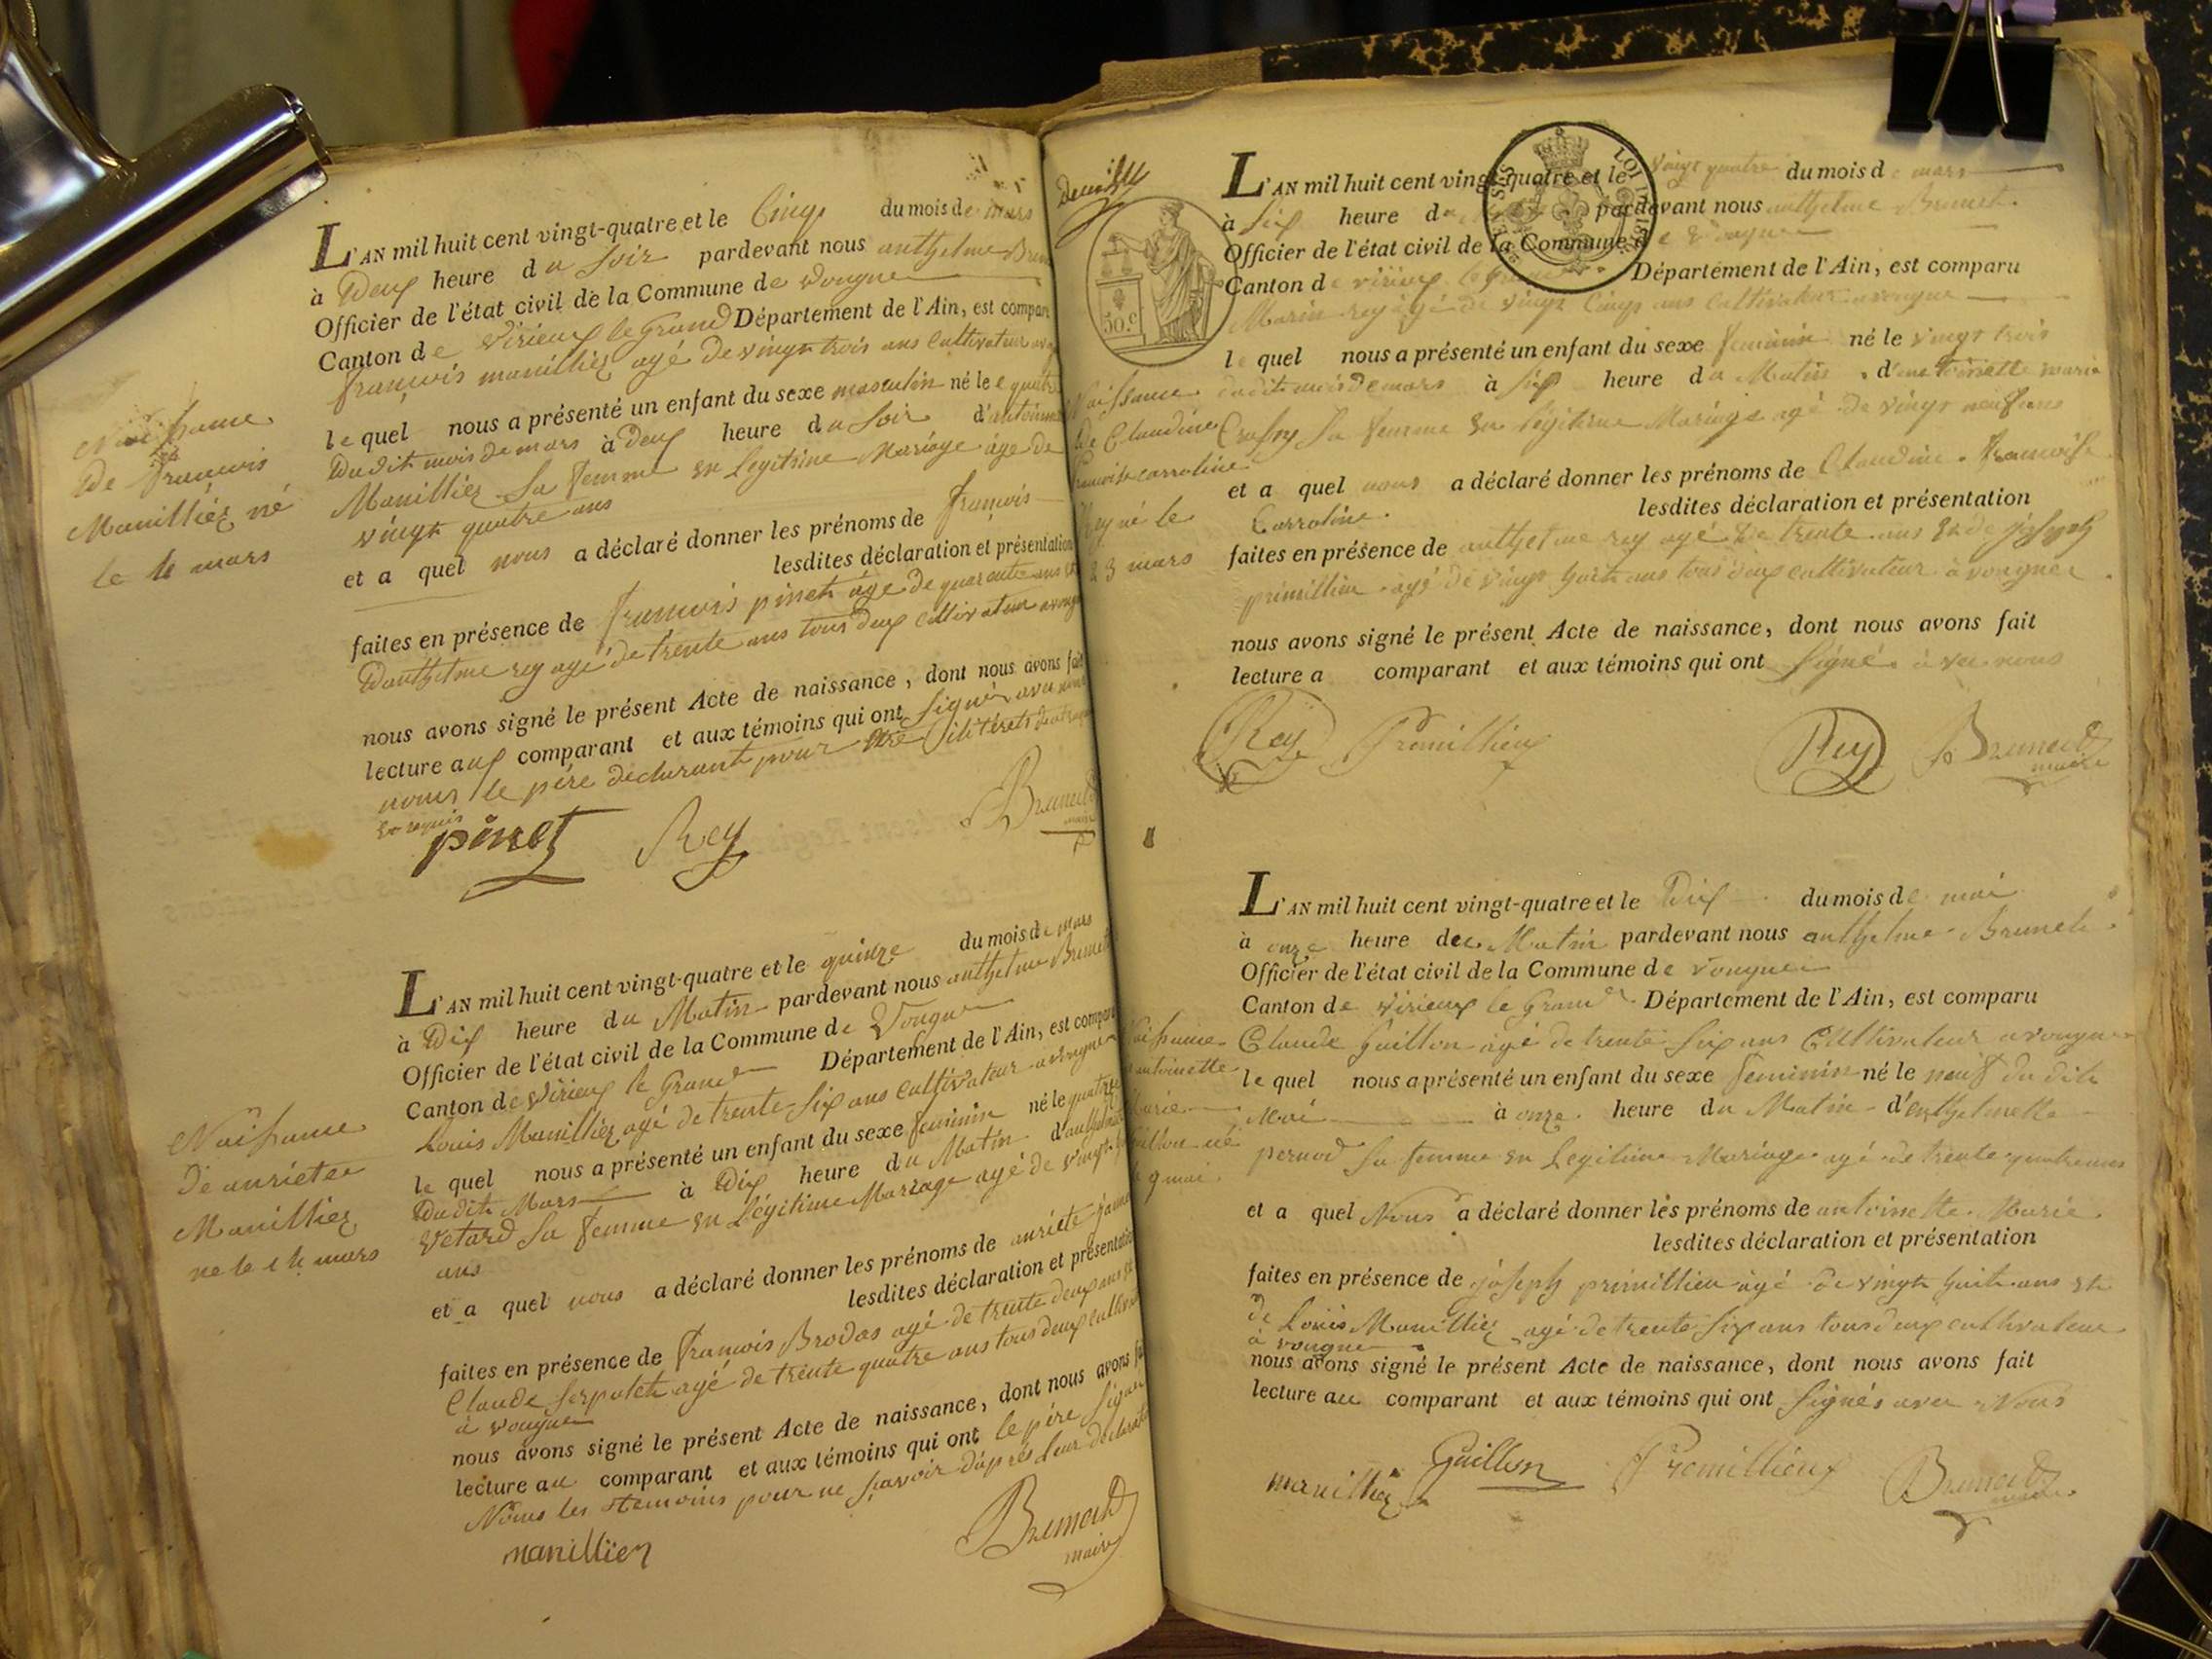 Naissance
de françois
Manilliez né
le 4 mars
L'AN mil huit cent vingt-quatre et le Cinq du mois de mars
à Deux heure du Soir pardevant nous anthelme
Officier de l'état civil de la Commune de vongne
Canton de virieux le grand Département de l'Ain, est compar
françois manilliez agé de vingt trois ans cultivateur
le quel nous a présenté un enfant du sexe masculin né le quatre
dudit mois de mars à deux heure du soir
Manilliez Sa femme en Legitime Mariage âge de
vingt quatre ans
et a quel nous a déclaré donner les prénoms de françois
lesdites déclaration et présentation
faites en présence de françois pinet âge de quarente ans
Danthelme rey agé de trente ans tous deux cultivateur
nous avons signé le présent Acte de naissance, dont nous avons fait
lecture aux comparant et aux témoins qui ont signer avec
nous le père declarant pour être
en requis
pinet Rey Brunet
maire
Naissance
de anriete
Manilliez
né le 14 mars
L'AN mil huit cent vingt-quatre et le quinze du mois de mars
à Dix heure du Matin pardevant nous anthelme Brunet
Officier de l'état civil de la Commune de Vongne
Canton de virieux le Grand Département de l'Ain, est compar
Louis Manilliez agé de trente six ans cultivateur a vongne
le quel nous a présenté un enfant du sexe feminin né le quatorze
dudit Mars à Dix heure du Matin
vetard Sa femme en Légitime Mariage agé de vingt
ans
et a quel nous a déclaré donner les prénoms de anriete
lesdites déclaration et présentation
faites en présence de françois Brodas agé de trente deux ans et
Claude serpolet agé de trente quatre ans tous deux cultivat
à vongne
nous avons signé le présent Acte de naissance, dont nous avons fa
lecture au comparant et aux témoins qui ont le père signé
Nous les temoins pour ne savoir d'après leur declarat
manilliez Brunet
maire
50.c
LOI
Naissance
de Claudine
francoise carroline
Rey né le
23 mars
L'AN mil huit cent vingt-quatre et le vingt quatre du mois de mars
à six heure du pardevant nous anthelme Brunet
Officier de l'état civil de la Commune de vongne
Canton de virieux le grand Département de l'Ain, est comparu
Marin rey agé de vingt cinq ans cultivateur a vongne
le quel nous a présenté un enfant du sexe feminin né le vingt trois
dudit mois de mars à six heure du Matin d'antoinette marie
Sa femme en Légitime Mariage agé de vingt neuf ans
et a quel nous a déclaré donner les prénoms de Claudine francoise
Carroline.
lesdites déclaration et présentation
faites en présence de anthelme rey agé de trente ans et de joseph
primillieu agé de vingt huit ans tous deux cultivateur à vongne
nous avons signé le présent Acte de naissance, dont nous avons fait
lecture a comparant et aux témoins qui ont signé avec nous
Rey Premillieux Rey Brunet
maire
Naissance
antoinette
Marie
Guillon né
le 9 mai
L'AN mil huit cent vingt-quatre et le Dix du mois de mai
à onze heure de Matin pardevant nous anthelme Brunet
Officier de l'état civil de la Commune de vongne
Canton de virieux le Grand Département de l'Ain, est comparu
Claude guillon agé de trente six ans Cultivateur a vongne
le quel nous a présenté un enfant du sexe feminin né le neuf du dit
Mai à onze heure du Matin d'enthelmette
pernod Sa femme en Legitime Mariage agé de trente quatre ans
et a quel Nous a déclaré donner les prénoms de antoinette Marie
lesdites déclaration et présentation
faites en présence de joseph primillieu agé de vingt huit ans et
de Louis Manilliez agé de trente six ans tous deux cultivateur
à vongne
nous avons signé le présent Acte de naissance, dont nous avons fait
lecture au comparant et aux témoins qui ont signés avec Nous
manilliez Guillon Premillieux Brunet
maire